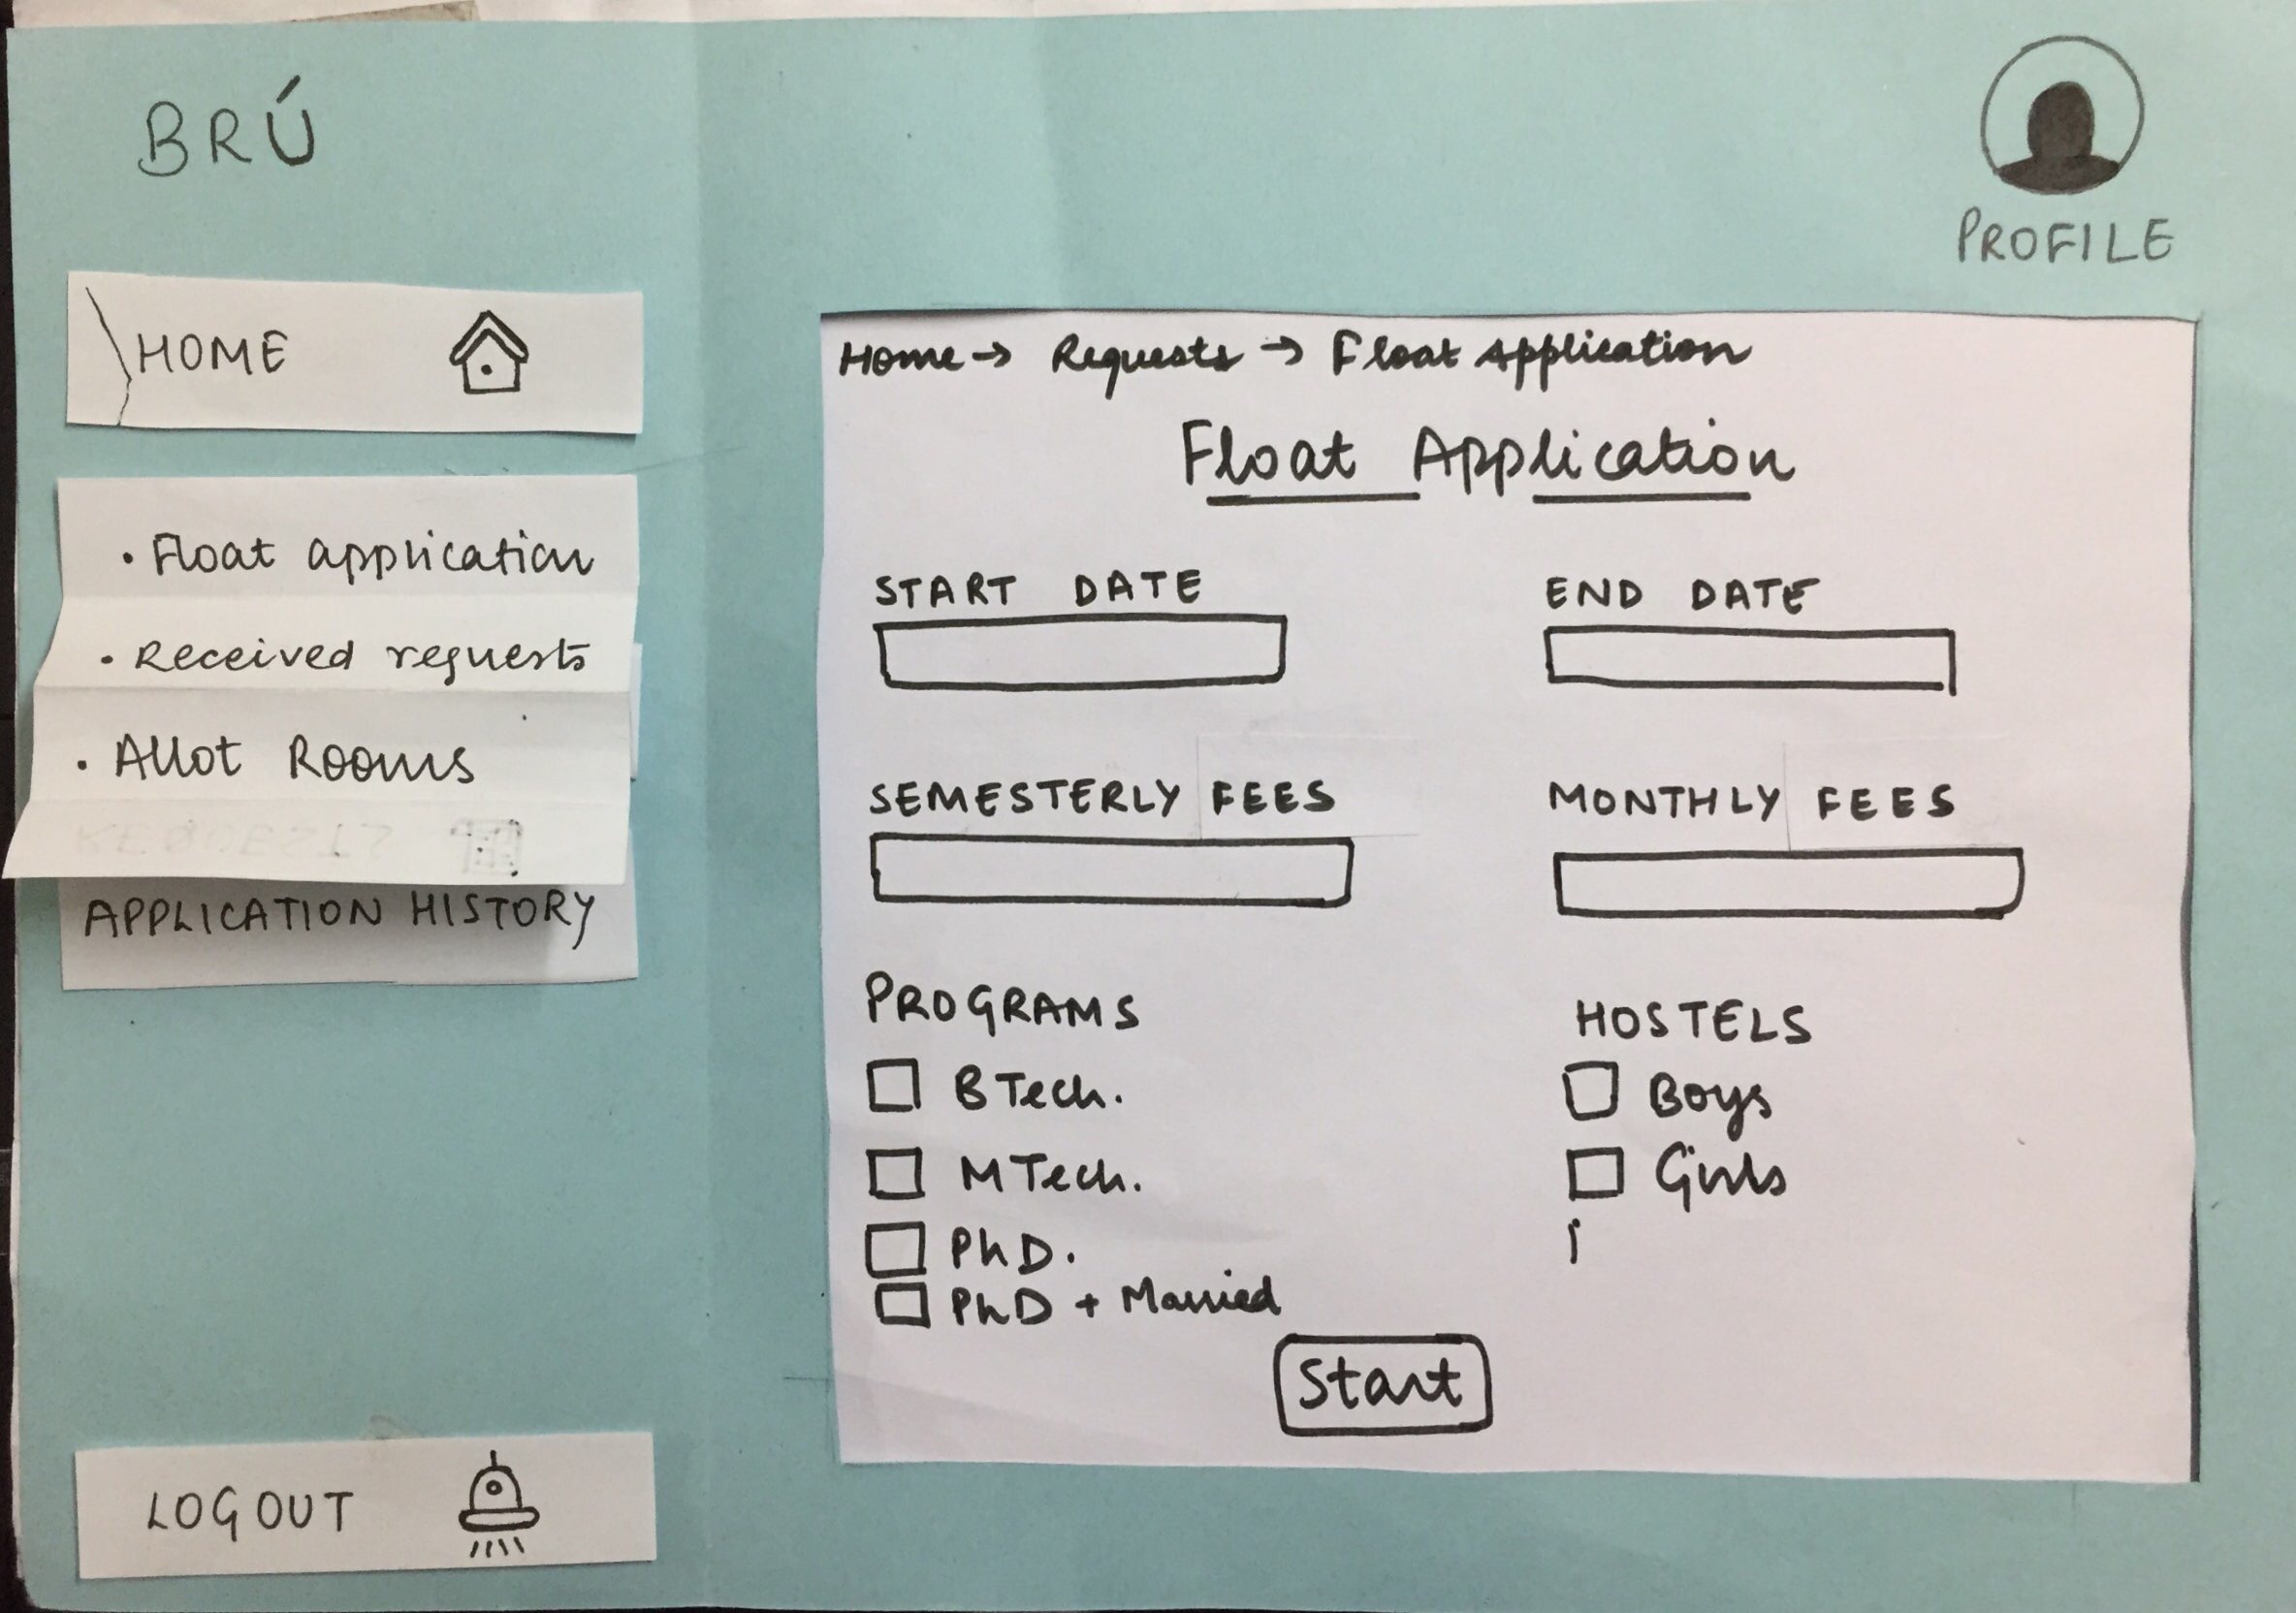 BRÚ
PROFILE
HOME
• Float application
• Received requests
• Allot Rooms
REQUESTS
APPLICATION HISTORY
LOGOUT
Home → Requests → Float Application
Float Application
START DATE
END DATE
SEMESTERLY FEES
MONTHLY FEES
PROGRAMS
BTech.
MTech.
PhD.
PhD + Married
HOSTELS
Boys
Girls
Start